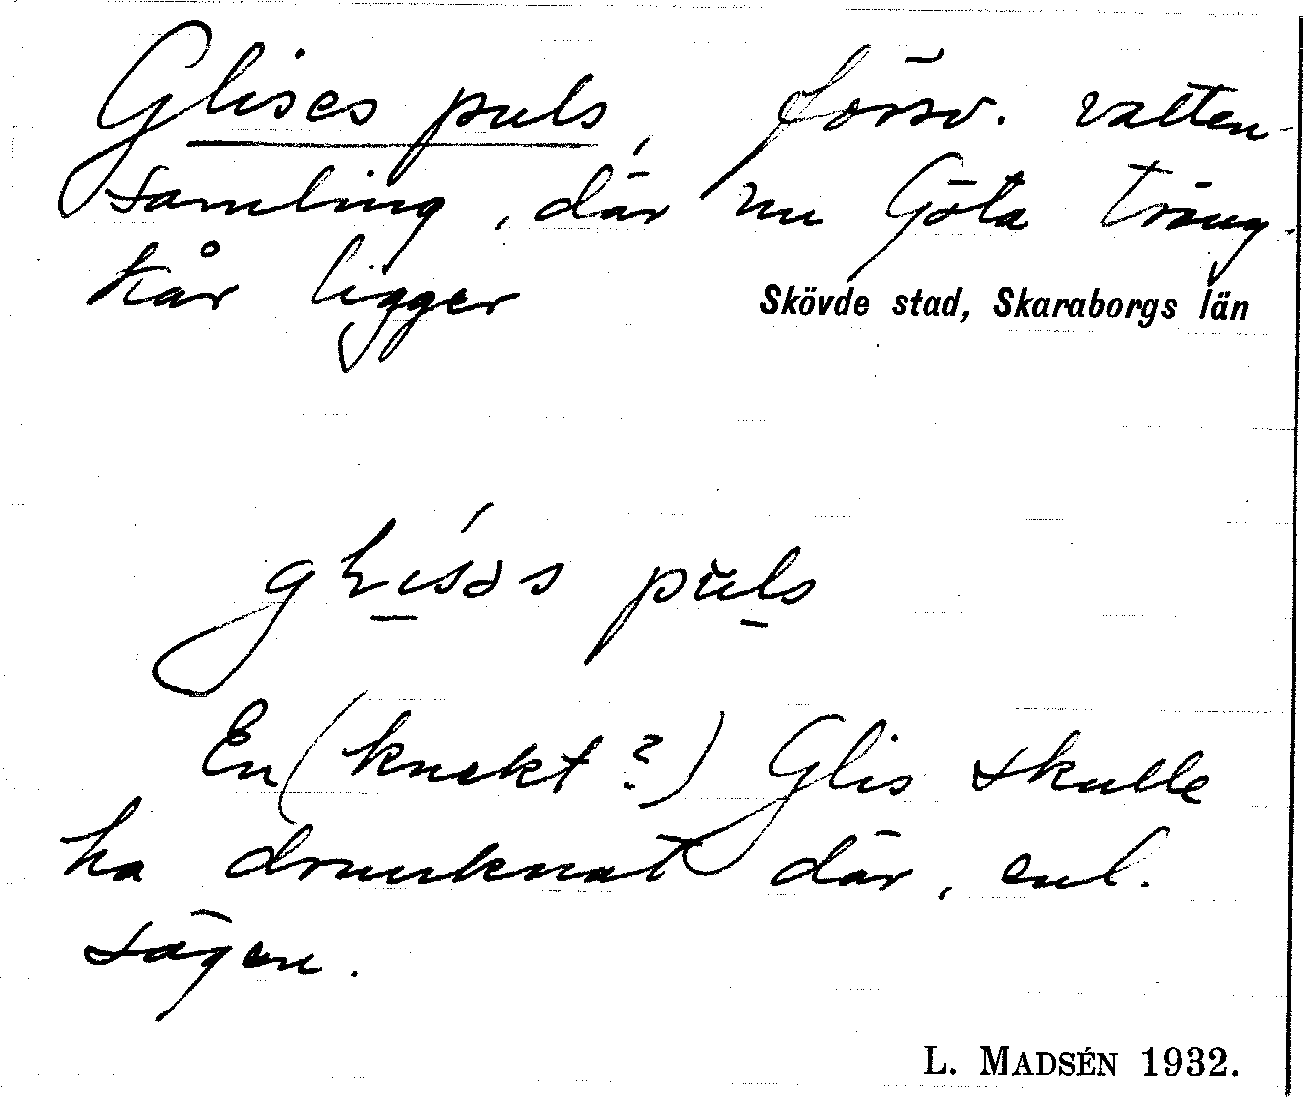 Glises puls, försv. vatten-
samling, där nu Göta träng-
kår ligger
Skövde stad, Skaraborgs län
puls
En (knekt?) Glis skulle
ha drunknat där, enl.
sägen.
L. MADSÉN 1932.